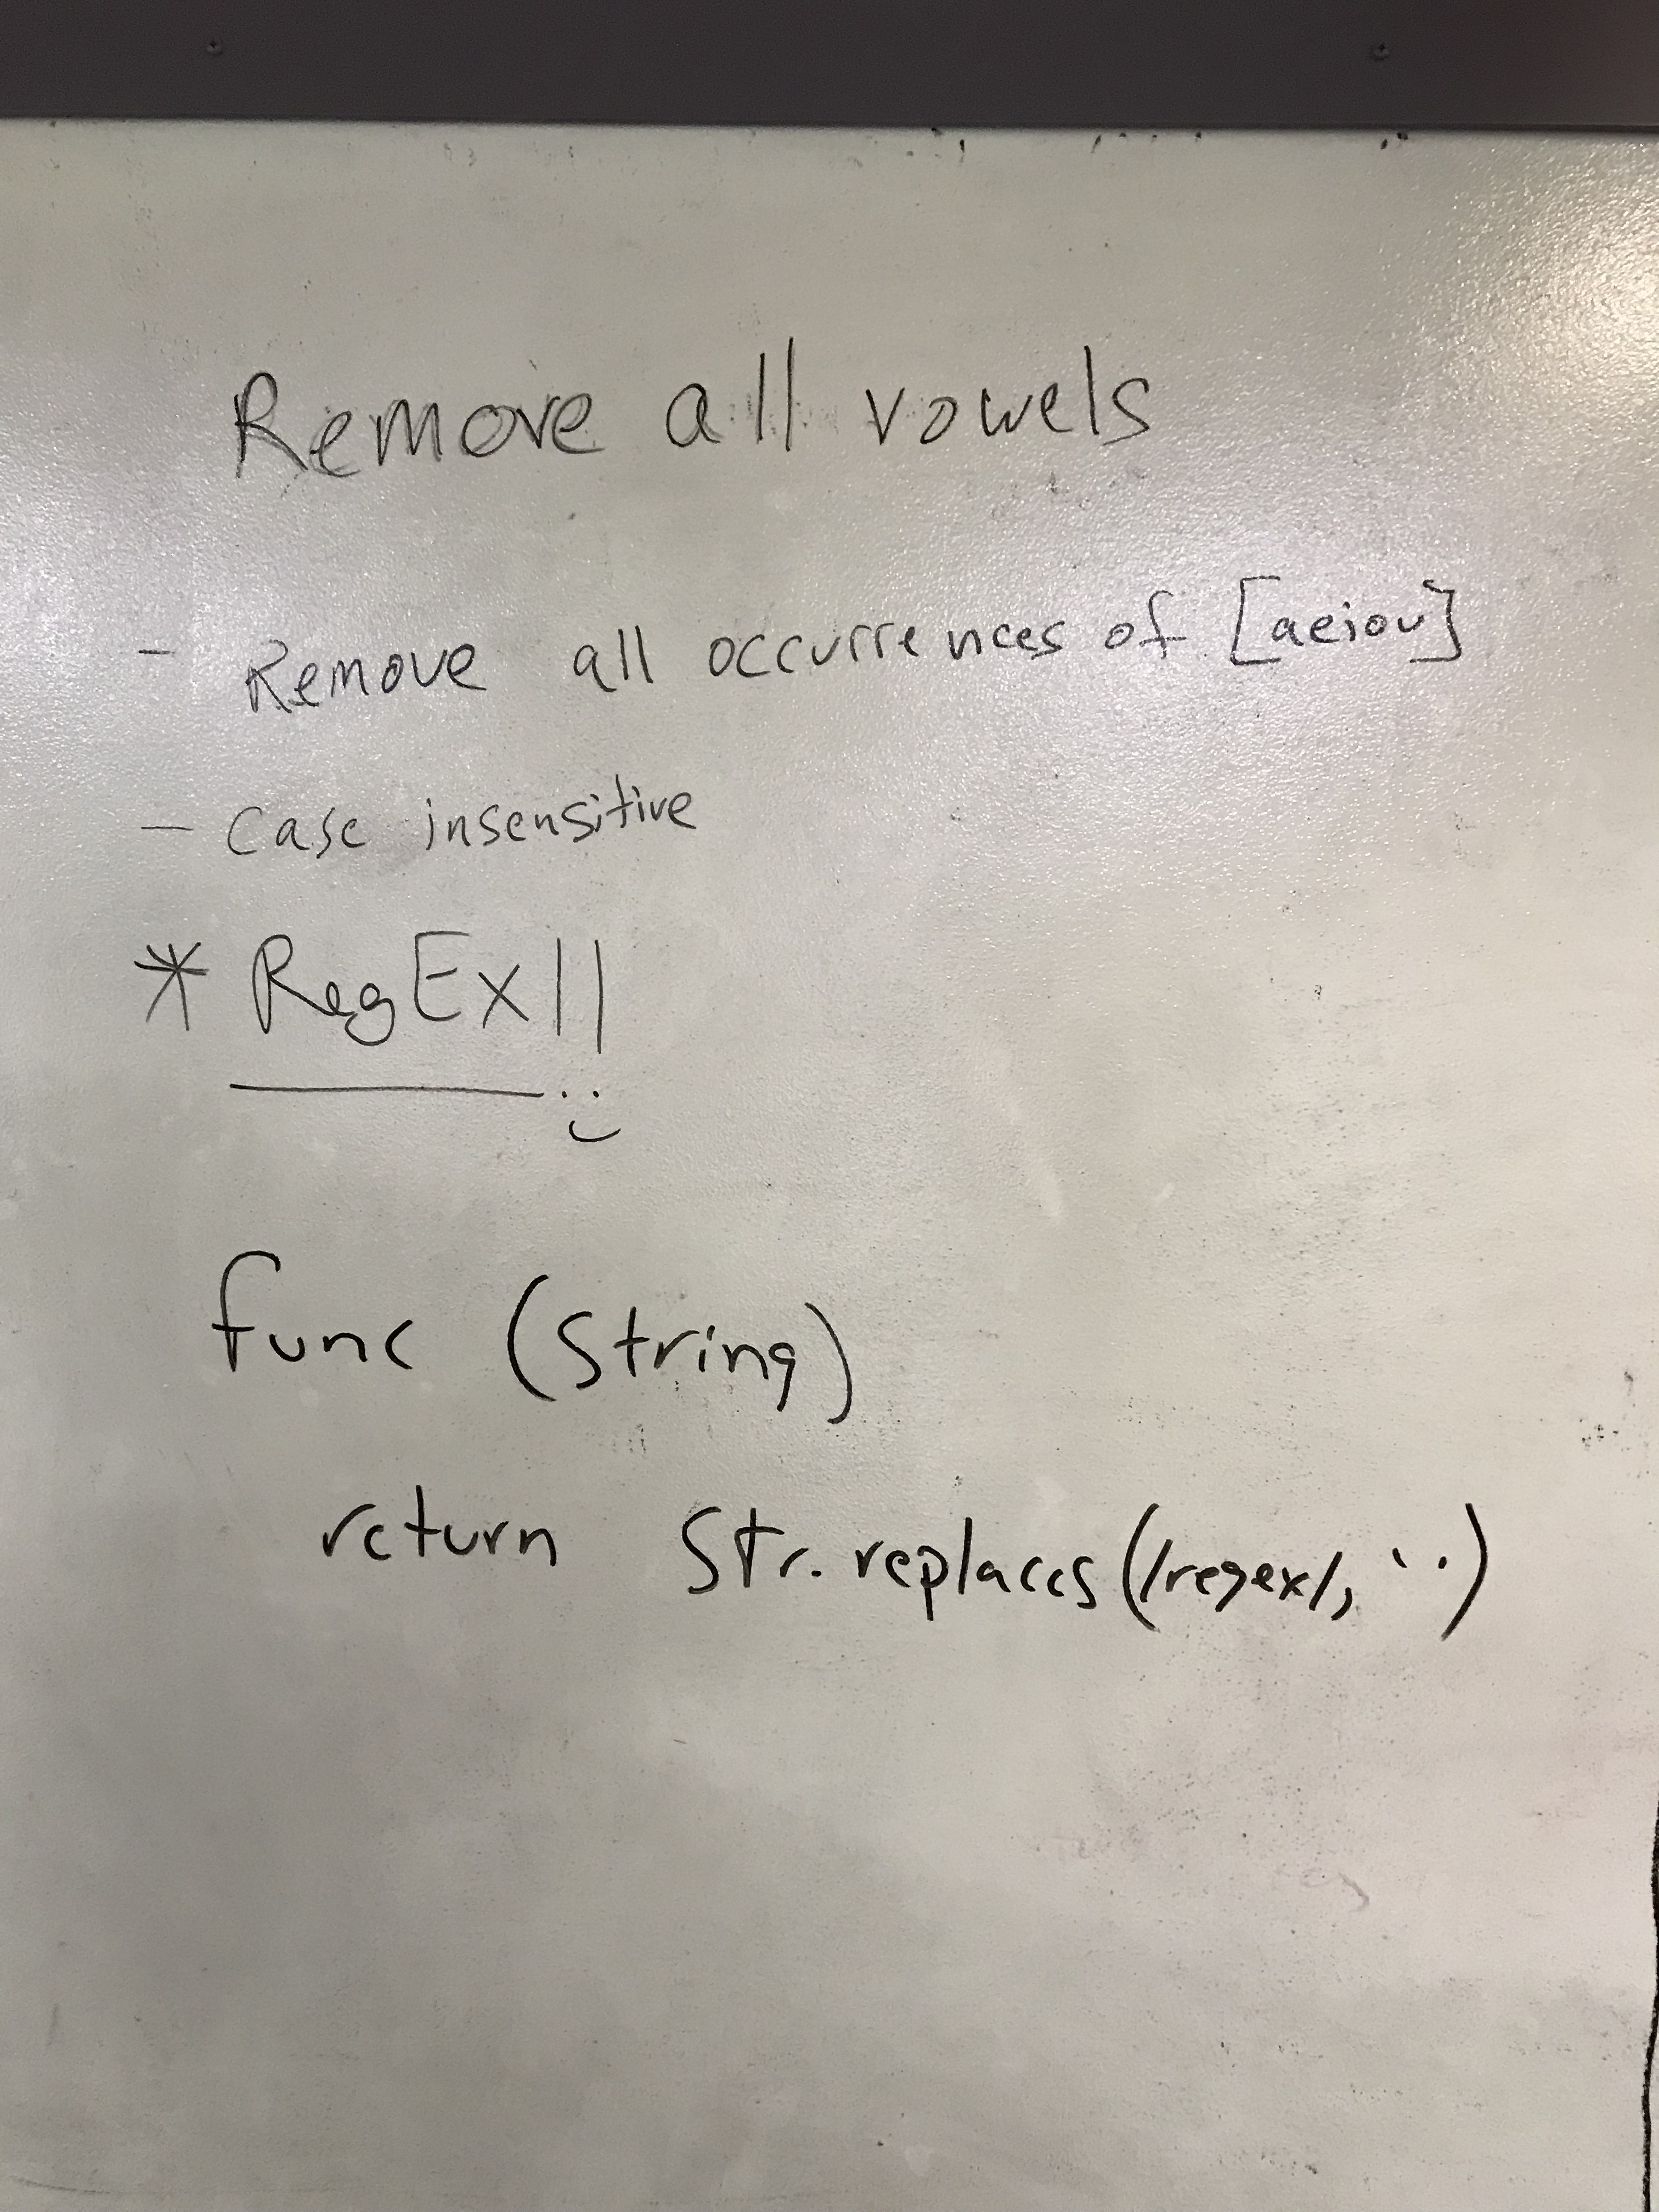 Remove all vowels
- Remove all occurrences of [aeiou]
- Case insensitive
* RegEx!!
func (string)
return str.replaces(/regex/, '')